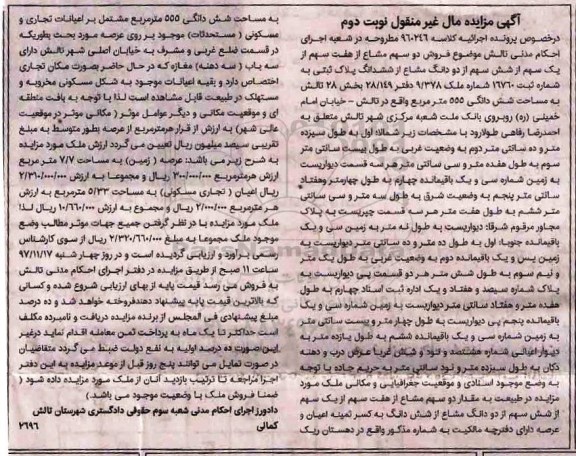 آگهی مزایده مال غیر منقول نوبت دوم
درخصوص پرونده اجرائیه کلاسه ۹۶۰۲۴۶ مطروحه در شعبه اجرای
احکام مدنی تالش موضوع فروش دو سهم مشاع از هفت سهم از
یک سهم از شش سهم از دو دانگ مشاع از ششدانگ پلاک ثبتی به
شماره ثبت ۱۶۷۶۰ شماره ملک ۹/۳۷۸ دفتر ۲۸/۱۴۹ بخش ۲۸ تالش
به مساحت شش دانگی ۵۵۵ متر مربع واقع در تالش - خیابان امام
خمینی (ره) روبروی بانک ملت شعبه مرکزی شهر تالش متعلق به
احمدرضا رفاهی طولارود با مشخصات زیر شمالا: اول به طول سیزده
متر و ده سانتی متر دوم به وضعیت غربی به طول بیست سانتی متر
سوم به طول هفده متر و سی سانتی متر هر سه قسمت دیواریست
به زمین شماره سی و یک باقیمانده چهارم به طول چهارمتر وهفتاد
سانتی متر پنجم به وضعیت شرق به طول سه متر و سی سانتی
متر ششم به طول هفت متر هر سه قسمت چپریست به پلاک
مجاور مرقوم شرقا: دیواریست به طول نه متر به زمین سی و یک
باقیمانده جنوبا: اول به طول ده متر و ده سانتی متر دیواریست به
زمین پس و یک باقیمانده دوم به وضعیت غربی به طول یک متر
و نیم سوم به طول شش متر هر دو قسمت پی دیواریست به
پلاک شماره سیصد و هفتاد و یک اداره ثبت اسناد چهارم به طول
هفده متر و هفتاد سانتی متر دیواریست به زمین شماره سی و یک
باقیمانده پنجم پی دیواریست به طول چهار متر و بیست سانتی متر
به زمین شماره سی و یک باقیمانده ششم به طول یازده متر به
دیوار اعیانی شماره هشتصد و نود و شش غربا عرض درب و دهنه
دکان به طول سیزده متر و نود سانتی متر به حریم جاده با توجه
به وضع موجود اسنادی و موقعیت جغرافیایی و مکانی ملک مورد
مزایده در طبیعت به مقدار دو سهم مشاع از هفت سهم از یک سهم
از شش سهم از دو دانگ مشاع از شش دانگ به کسر ثمینه اعیان و
عرصه دارای دفترچه مالکیت به شماره مذکور واقع در دهستان ریک
به مساحت شش دانگی ۵۵۵ مترمربع مشتمل بر اعیانات تجاری و
مسکونی ( مستحدثات) موجود بر روی عرصه مورد بحث بطوریکه
در قسمت ضلع غربی و مشرف به خیابان اصلی شهر تالش دارای
سه باب ( سه دهنه) مغازه که در حال حاضر بصورت مکان تجاری
اختصاص دارد و بقیه اعیانات موجود به شکل مسکونی مخروبه و
مستهلک در طبیعت قابل مشاهده است لذا با توجه به بافت منطقه
ای و موقعیت مکانی و دیگر عوامل موثر ( مکانی موثر در موقعیت
عالی شهر) به ارزش از قرار هرمترمربع از عرصه بطور متوسط به مبلغ
تقریبی سیصد میلیون ریال تعیین می گردد ارزش ملک مورد مزایده
به شرح زیر می باشد: عرصه ( زمین) به مساحت ۷/۷ متر مربع
ارزش هرمترمربع ۳۰۰/۰۰۰/۰۰۰ ریال و مجموعا به ارزش ۲/۳۱۰/۰۰۰/۰۰۰
ریال اعیان ( تجاری مسکونی) به مساحت ۵/۳۳ مترمربع به ارزش
هر مترمربع ۲/۰۰۰/۰۰۰ ریال و مجموع به ارزش ۱۰/۶۶۰/۰۰۰ ریال لذا
ملک مورد مزایده با در نظر گرفتن جمیع جهات موثر مطالب وضع
موجود ملک مجموعا به مبلغ ۲/۳۲۰/۶۶۰/۰۰۰ ریال از سوی کارشناس
رسمی برآورد و ارزیابی گردیده است و در روز چهار شنبه ۹۷/۱۱/۱۷
ساعت ۱۱ صبح از طریق مزایده در دفتر اجرای احکام مدنی تالش
به فروش می رسد قیمت پایه از بهای ارزیابی شروع شده و کسانی
که بالاترین قیمت پایه پیشنهاد دهندفروخته خواهد شد و ده درصد
مبلغ پیشنهادی فی المجلس از برنده مزایده دریافت و نامبرده مکلف
است حداکثر تا یک ماه به پرداخت ثمن معامله اقدام نماید درغیر
این صورت ده درصد اولیه به نفع دولت ضبط می گردد متقاضیان
در صورت تمایل می توانند پنج روز قبل از موعد مزایده به این دفتر
اجرا مراجعه تا ترتیب بازدید آنان از ملک مورد مزایده داده شود (
ضمنا فروش ملک با وضعیت موجود می باشد.)
دادورز اجرای احکام مدنی شعبه سوم حقوقی دادگستری شهرستان تالش
کمالی
۲۶۹۶